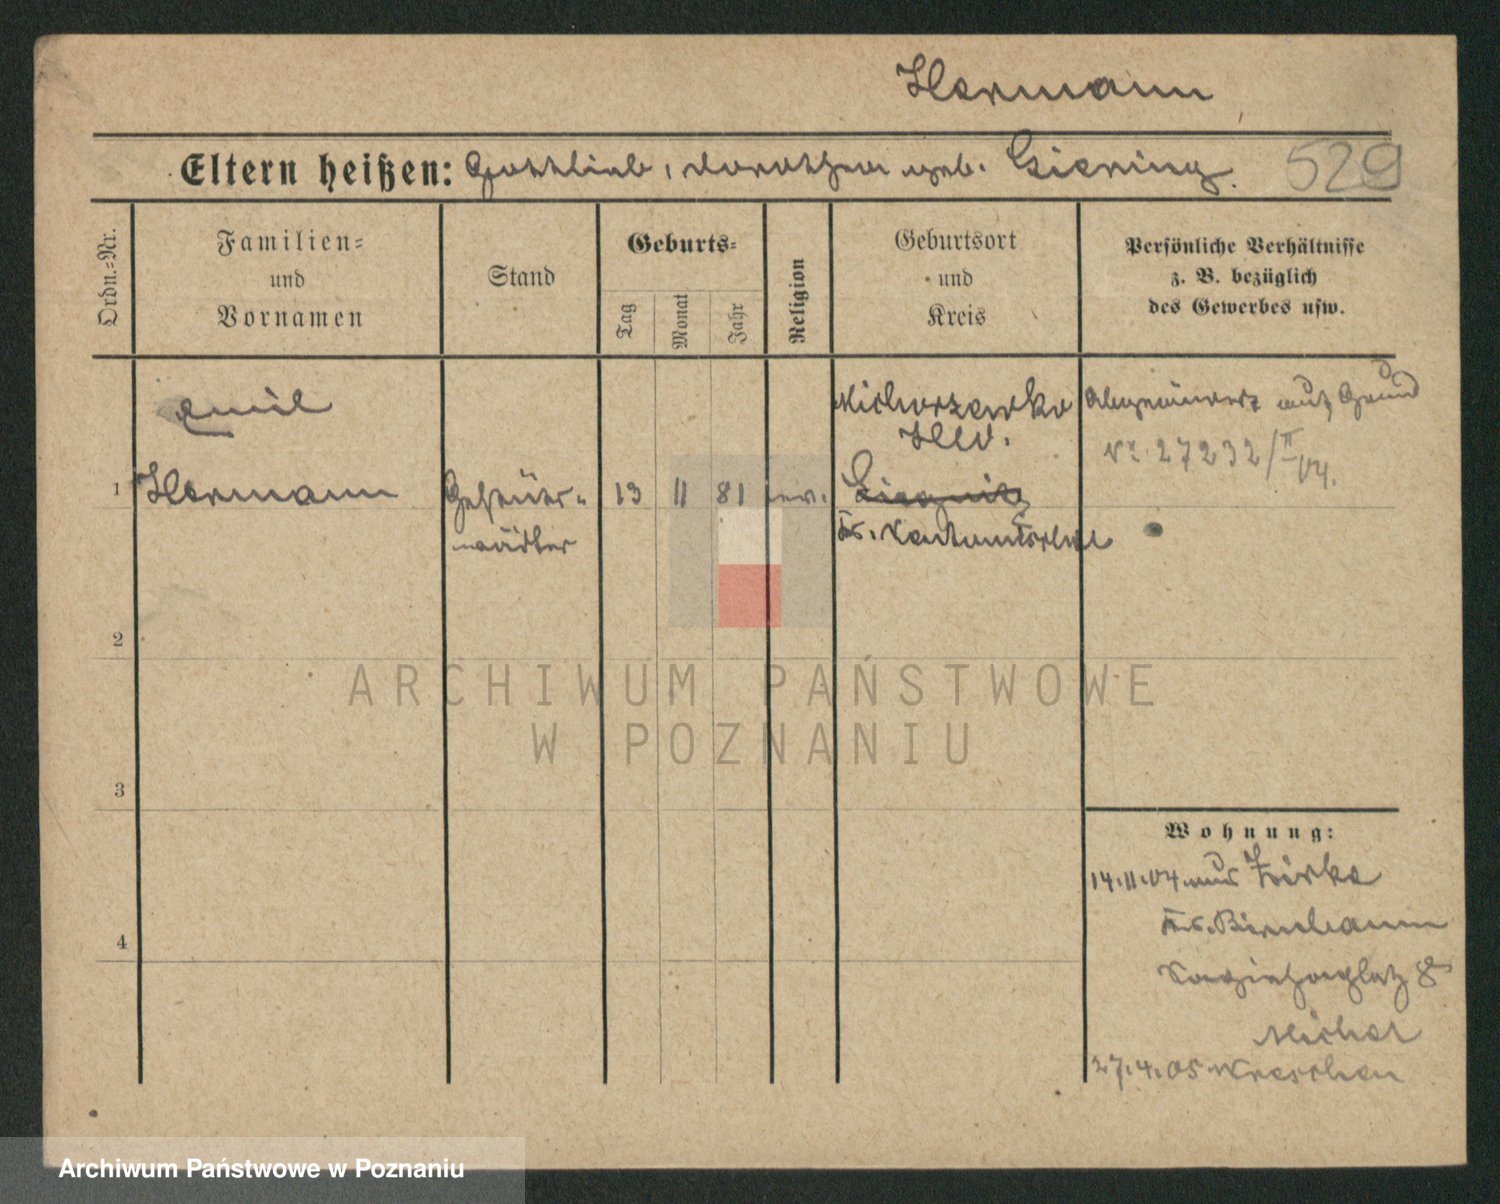 Hermann
Eltern heißen: Gottlieb, Dorothea geb. Giering.
529
Ordn.=Nr.
Familien=
und
Vornamen
Stand
Geburts=
Tag
Monat
Jahr
Religion
Geburtsort
und
Kreis
Persönliche Verhältnisse
z. B. bezüglich
des Gewerbes usw.
Emil
Hermann
1
13 11 81 ev.
wärter
Michorzewko
Hld.
Liegnitz
Kr.
auf Grund
Nr. 27232/II 04.
2
3
4
Wohnung:
14.11.04 aus Zirke
Kr. Birnbaum
8
Michel
27.4.05 Wreschen
ARCHIWUM PAŃSTWOWE
W POZNANIU
Archiwum Państwowe w Poznaniu